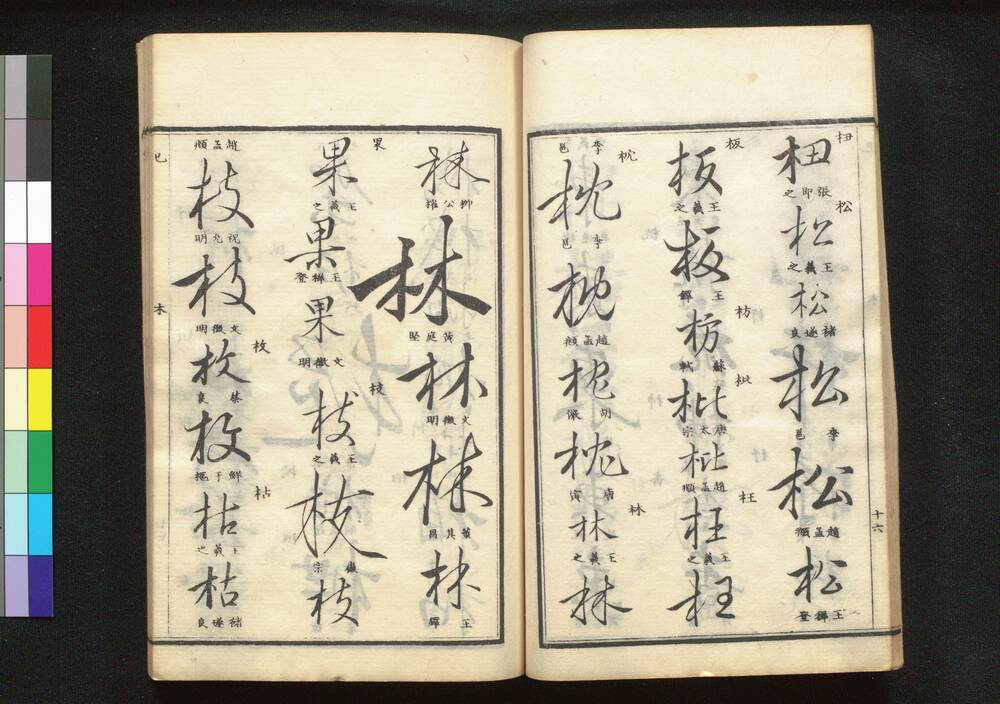 杻
張即之
松
松
王羲之
松
褚遂良
松
李邕
松
趙孟頫
松
王穉登
十六
板
板
王羲之
板
王鐸
枋
枋
蘇軾
枇
枇
唐太宗
枇
趙孟頫
枉
枉
王羲之
枉
李邕
枕
枕
李邕
枕
趙孟頫
枕
胡儼
枕
唐寅
林
林
王羲之
林
林
柳公權
林
黃庭堅
林
文徵明
林
董其昌
林
王鐸
果
果
王羲之
果
王穉登
果
文徵明
枝
枝
王羲之
枝
徽宗
枝
趙孟頫
枝
祝允明
枝
文徵明
枚
枚
枚
鮮于樞
枯
枯
王羲之
枯
褚遂良
巳
木